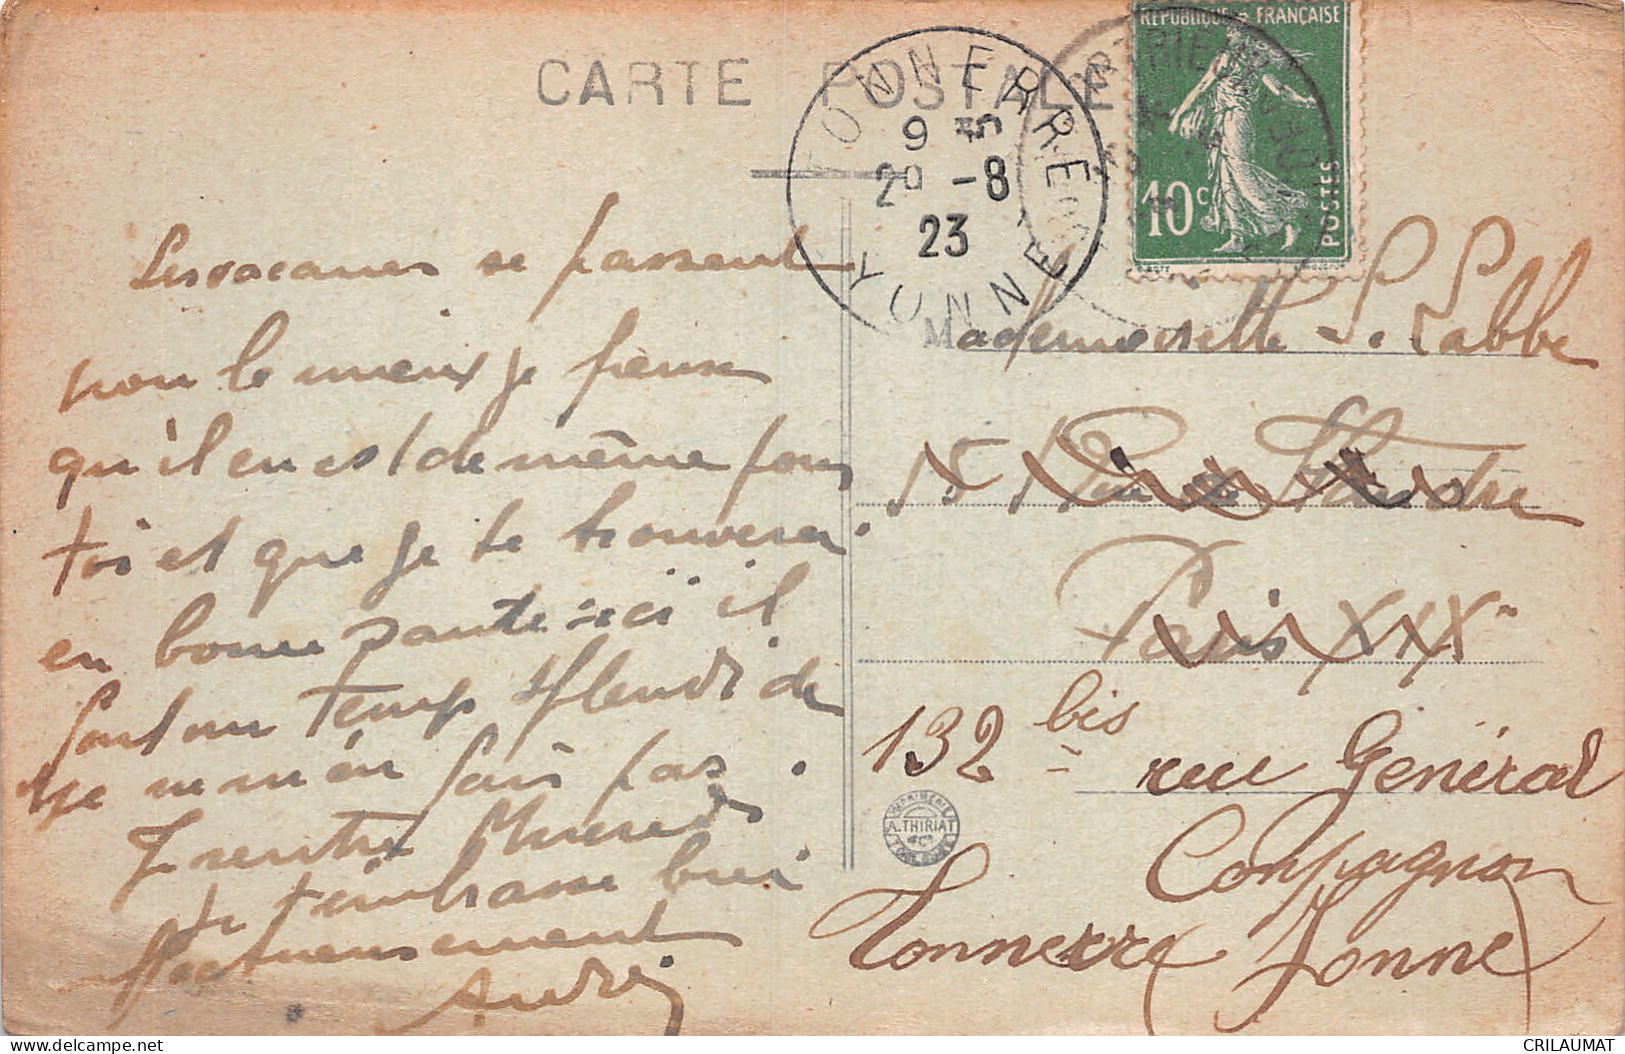 CARTE POSTALE
RÉPUBLIQUE FRANÇAISE
10c
POSTES
TONNERRE
9 45
29 -8
23
YONNE
Les vacances se passent
pour le mieux je pense
qu'il en est de même pour
toi et que je te trouverai
en bonne santé ici il
fait un temps splendide
je ne m'en fais pas.
Je rentre Mercredi
Je t'embrasse bien
affectueusement
André
Mademoiselle S. Labbé
15 Rue de
Paris XIXe
132 bis rue Général
Compagnon
Tonnerre Yonne
IMPRIMERIE
A. THIRIAT
& Cie
TOULOUSE
CRILAUMAT